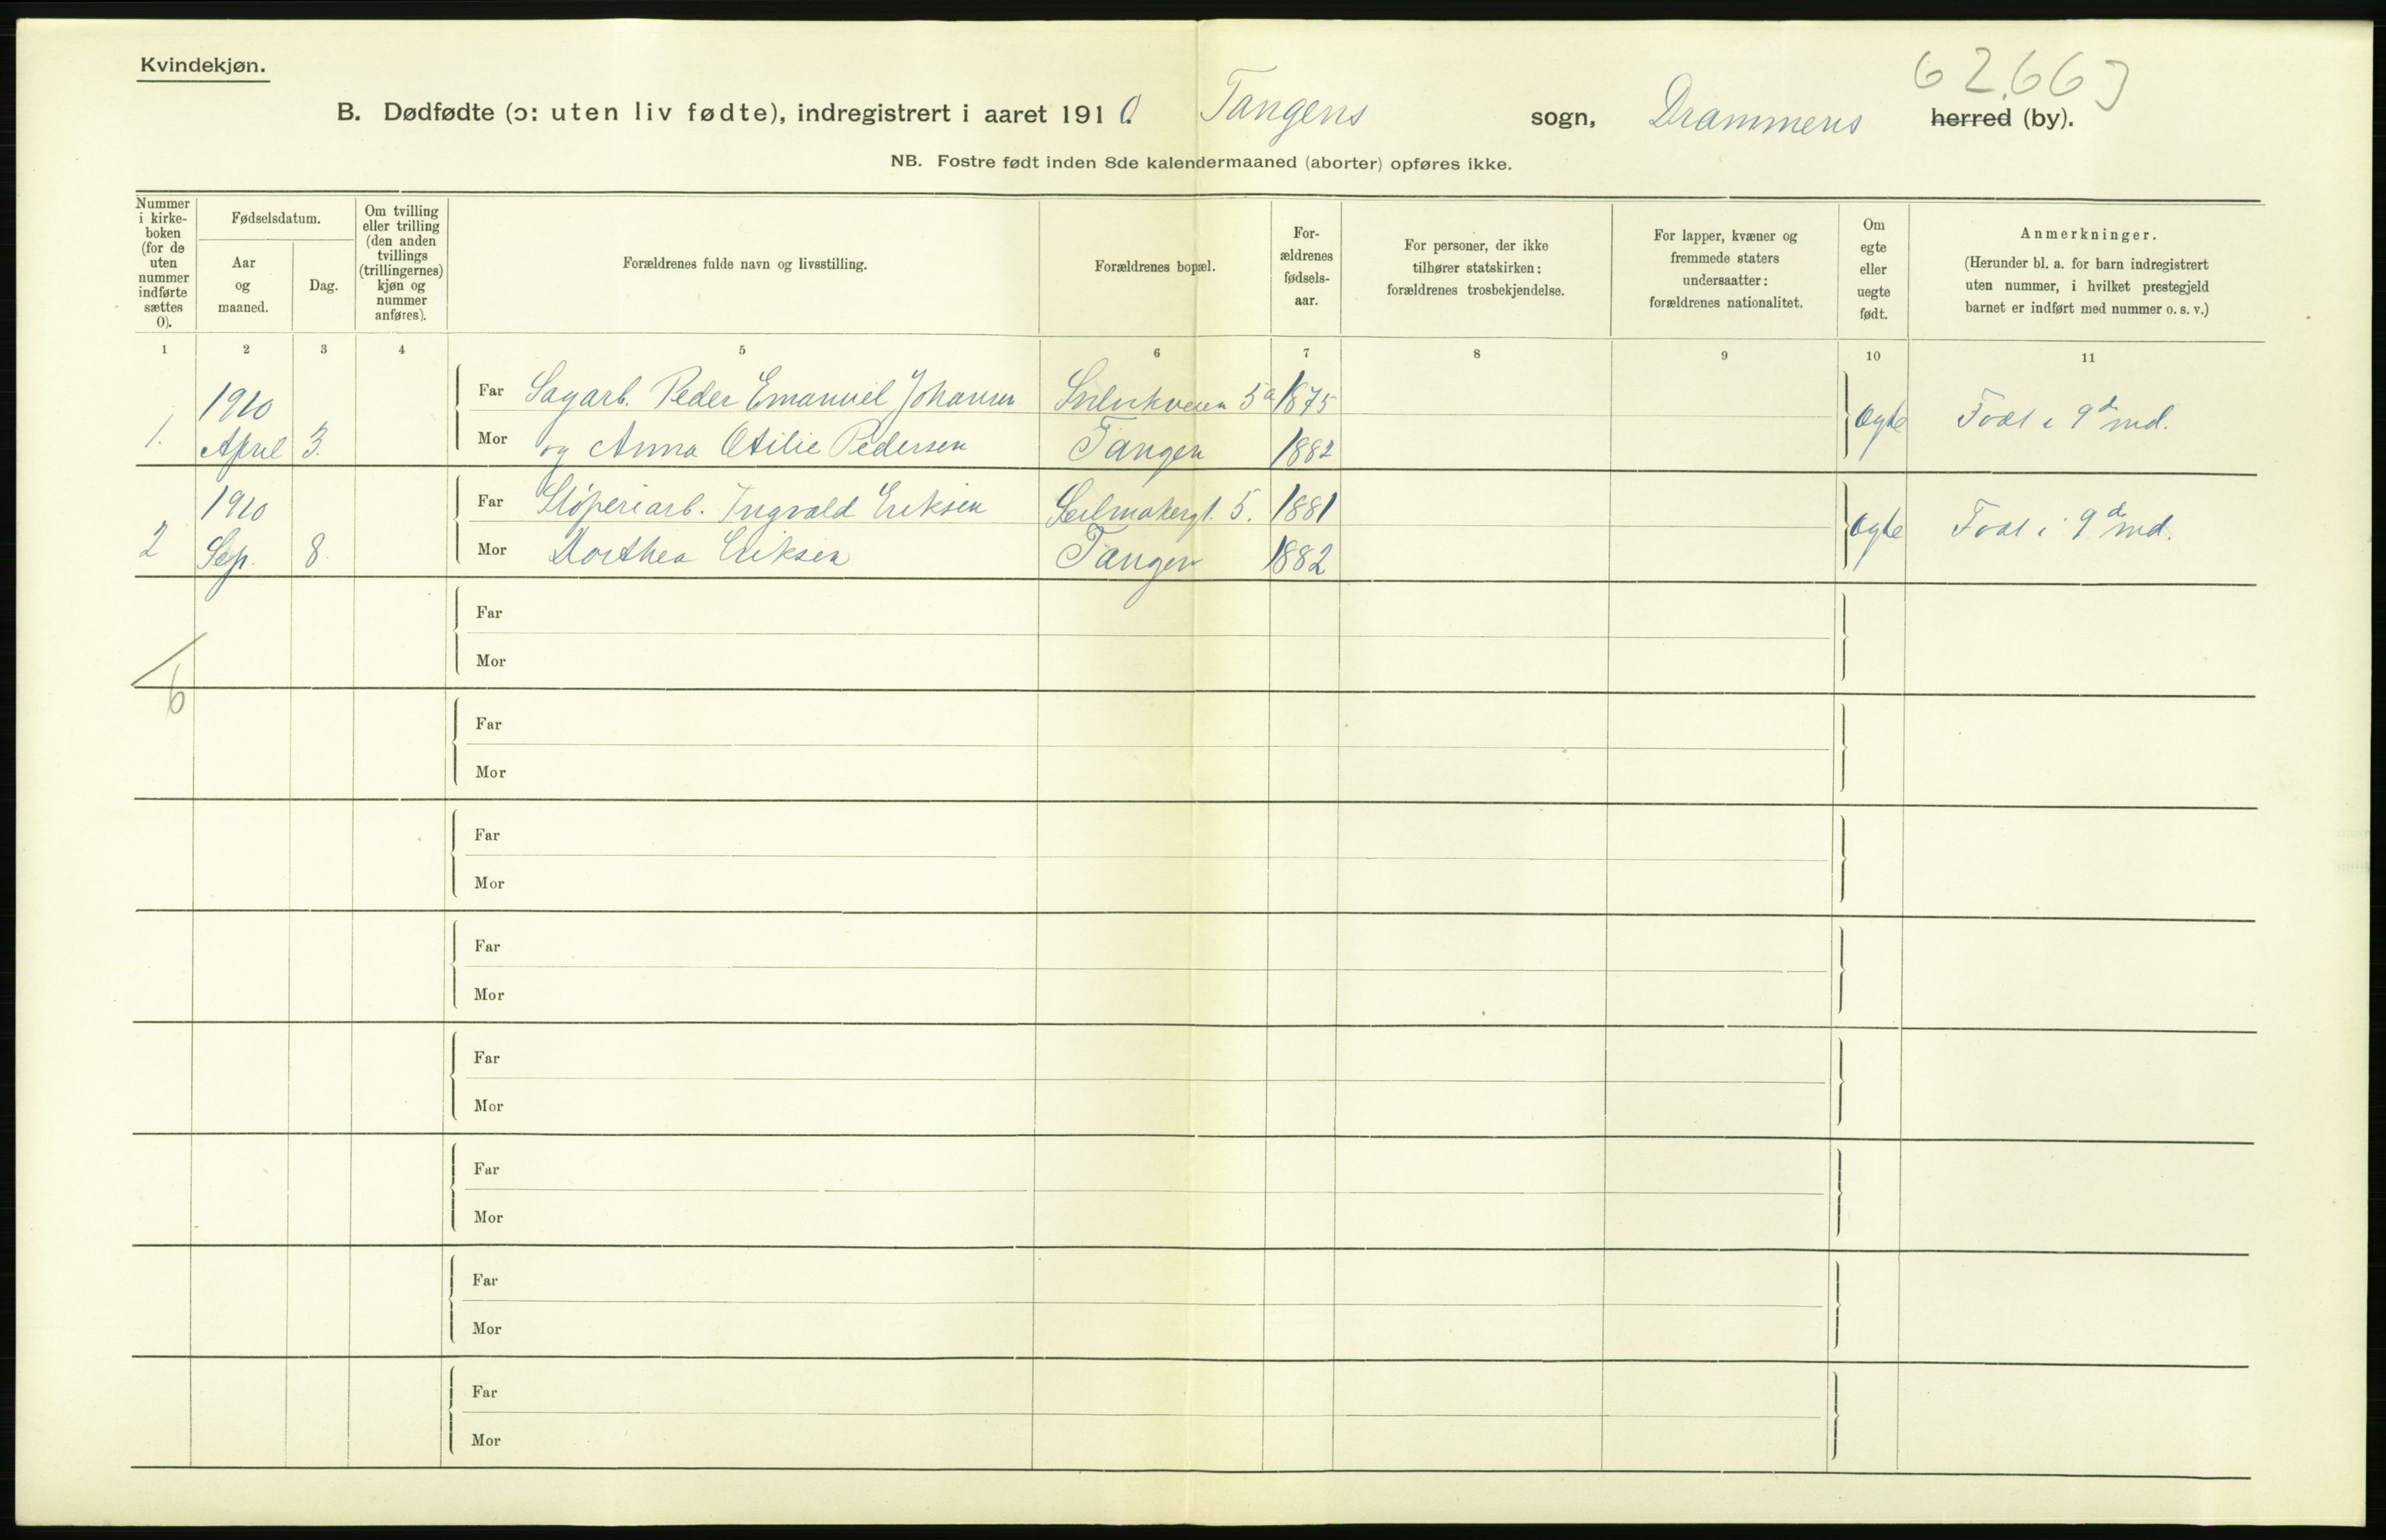 Kvindekjøn.
62.663
B. Dødfødte (ɔ: uten liv fødte), indregistrert i aaret 1910. Tangens sogn, Drammens herred (by).
NB. Fostre født inden 8de kalendermaaned (aborter) opføres ikke.
Nummer
i kirke-
boken
(for de
uten
nummer
indførte
sættes
0).
Fødselsdatum.
Aar
og
maaned.
Dag.
Om tvilling
eller trilling
(den anden
tvillings
(trillingernes)
kjøn og
nummer
anføres).
Forældrenes fulde navn og livsstilling.
Forældrenes bopæl.
For-
ældrenes
fødsels-
aar.
For personer, der ikke
tilhører statskirken:
forældrenes trosbekjendelse.
For lapper, kvæner og
fremmede staters
undersaatter:
forældrenes nationalitet.
Om
egte
eller
uegte
født.
Anmerkninger.
(Herunder bl. a. for barn indregistrert
uten nummer, i hvilket prestegjeld
barnet er indført med nummer o. s. v.)
1 2 3 4 5 6 7 8 9 10 11
1910 Far Sagarb. Peder Emanuel Johansen 5a 1875
1. April 3. Mor og Anna Otilie Pedersen Tangen 1882 Egte Født i 9d md.
1910 Far Støperiarb. Ingvald Eriksen Seilmakergt. 5. 1881
2 Sep. 8. Mor Dorthea Eriksen Tangen 1882 Egte Født i 9d md.
Far
Mor
6
Far
Mor
Far
Mor
Far
Mor
Far
Mor
Far
Mor
Far
Mor
Far
Mor